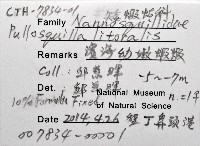 CTH-7834-01
Family Nannosquillidae 蝦蛄科
Pullosquilla litoralis
Remarks 濱海幼嫩蝦蛄
Coll: 邱慈暉 -5~7m
Det. 邱慈暉
10% Formalin Fixed National Museum n.=1♀
of Natural Science
Date 2014.4.26 墾丁
007834-00001